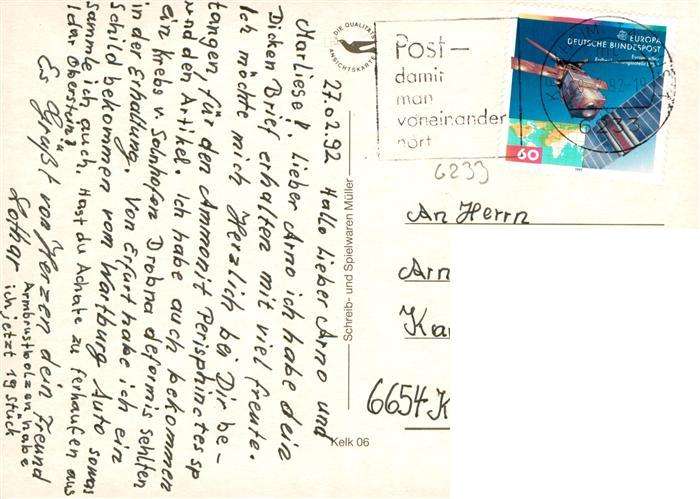 27.02.92 Hallo lieber Arno und
Marliese!. Lieber Arno ich habe dein
Dicken Brief erhalten mit viel freute.
Ich möchte mich Herzlich bei Dir be-
tangen, für den Ammonit Perisphinctes sp
und den Artikel. Ich habe auch bekommen
ein Krebs v. Solnhofen Drobna deformis sehlten
in der Erhallung. Von Erfurt habe ich ein
Schild bekommen vom Wartburg Auto sowas
sammle ich auch. Hast du Achate zu ferhaufen aus
Idar Oberstein?
Es Grüßt von Herzen dein Freund
Lothar
Armbrustbolzen habe
ich jetzt 19 Stück
DIE QUALITÄTS
ANSICHTSKARTE
Schreib- und Spielwaren Müller
Kelk 06
Post-
damit
man
voneinander
hört
EUROPA
DEUTSCHE BUNDESPOST
60
6233
6233
An Herrn
Arn
Ka
6654 K